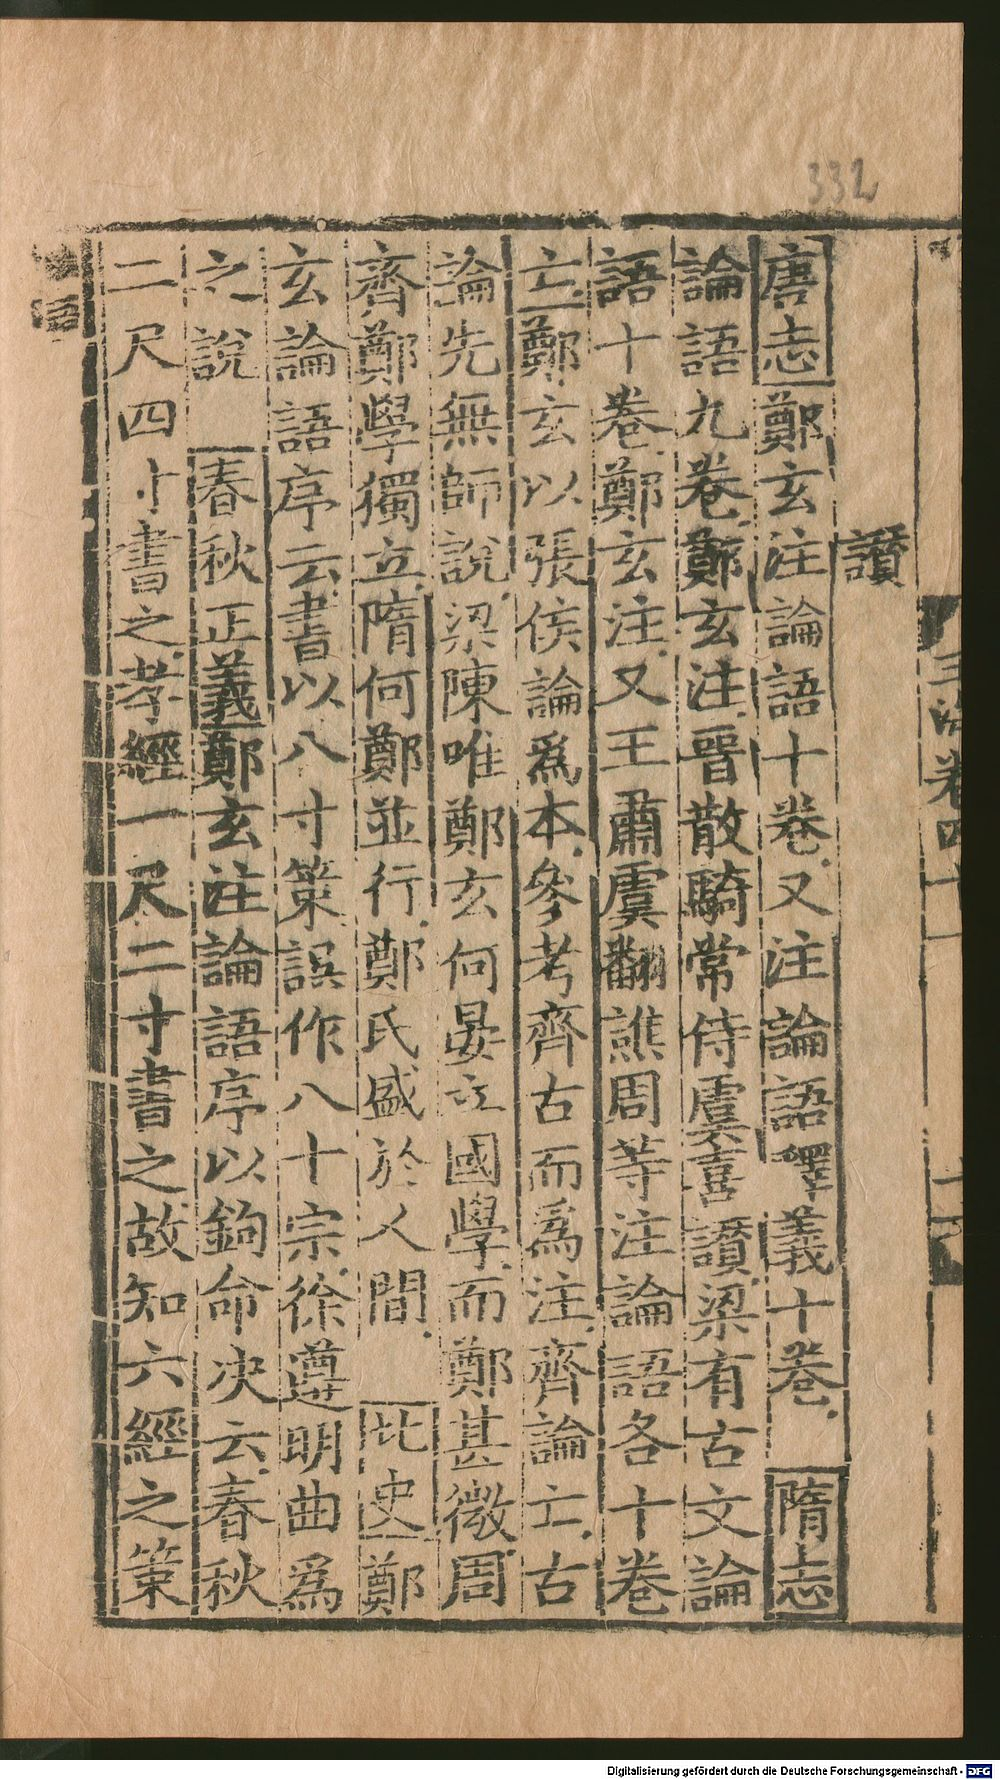 332
讃
唐志鄭玄注論語十卷又注論語釋義十卷 隋志
論語九卷鄭玄注晋散騎常侍虞喜讃梁有古文論
語十卷鄭玄注又王肅虞翻譙周等注論語各十卷
亡鄭玄以張侯論爲本參考齊古而爲注齊論亡古
論先無師說梁陳唯鄭玄何晏立國學而鄭甚微周
齊鄭學獨立隋何鄭並行鄭氏盛於人間 北史鄭
玄論語序云書以八寸策誤作八十宗徐遵明曲爲
之說 春秋正義鄭玄注論語序以鉤命决云春秋
二尺四寸書之孝經一尺二寸書之故知六經之策
語
Digitalisierung gefördert durch die Deutsche Forschungsgemeinschaft - DFG